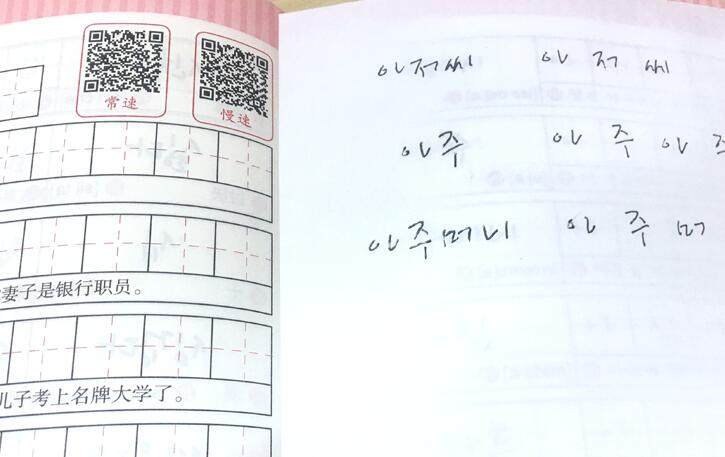 常速
慢速
妻子是银行职员。
儿子考上名牌大学了。
아저씨 아저씨
아주 아주 아주
아주머니 아주머